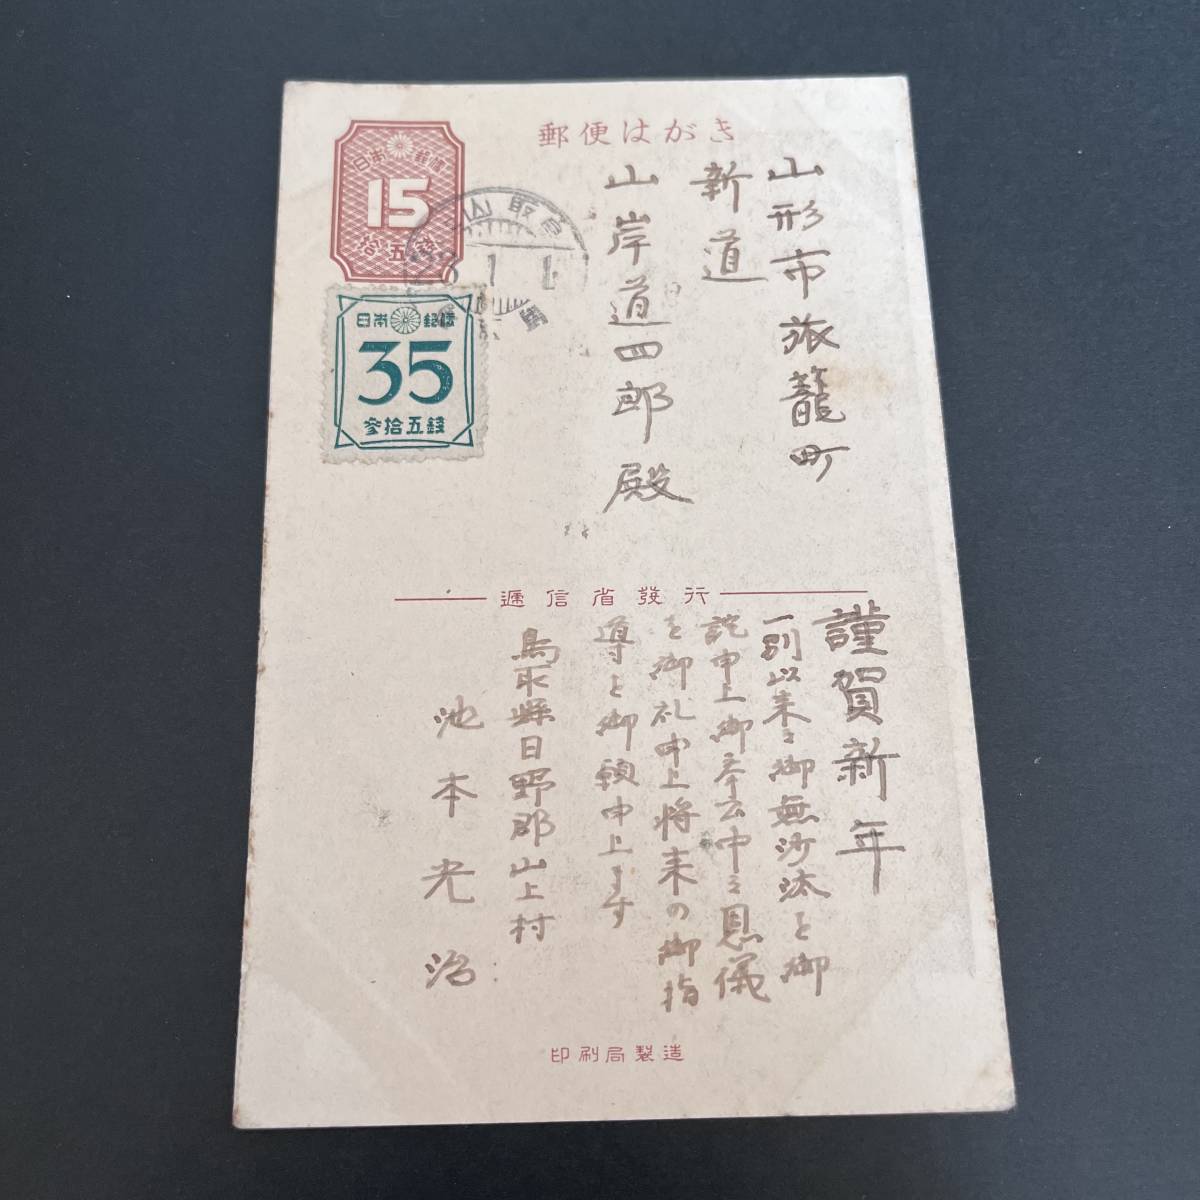 郵便はがき
日本郵便
15
拾五錢
日本郵便
35
參拾五錢
山形市旅籠町
新道
山岸道四郎殿
遞信省發行
謹賀新年
一別以来ミ御無沙汰を御
詫申上御奉公中ミ恩儀
を御礼申上将来の御指
導を御頼申上ます
鳥取縣日野郡山上村
池本光治
印刷局製造